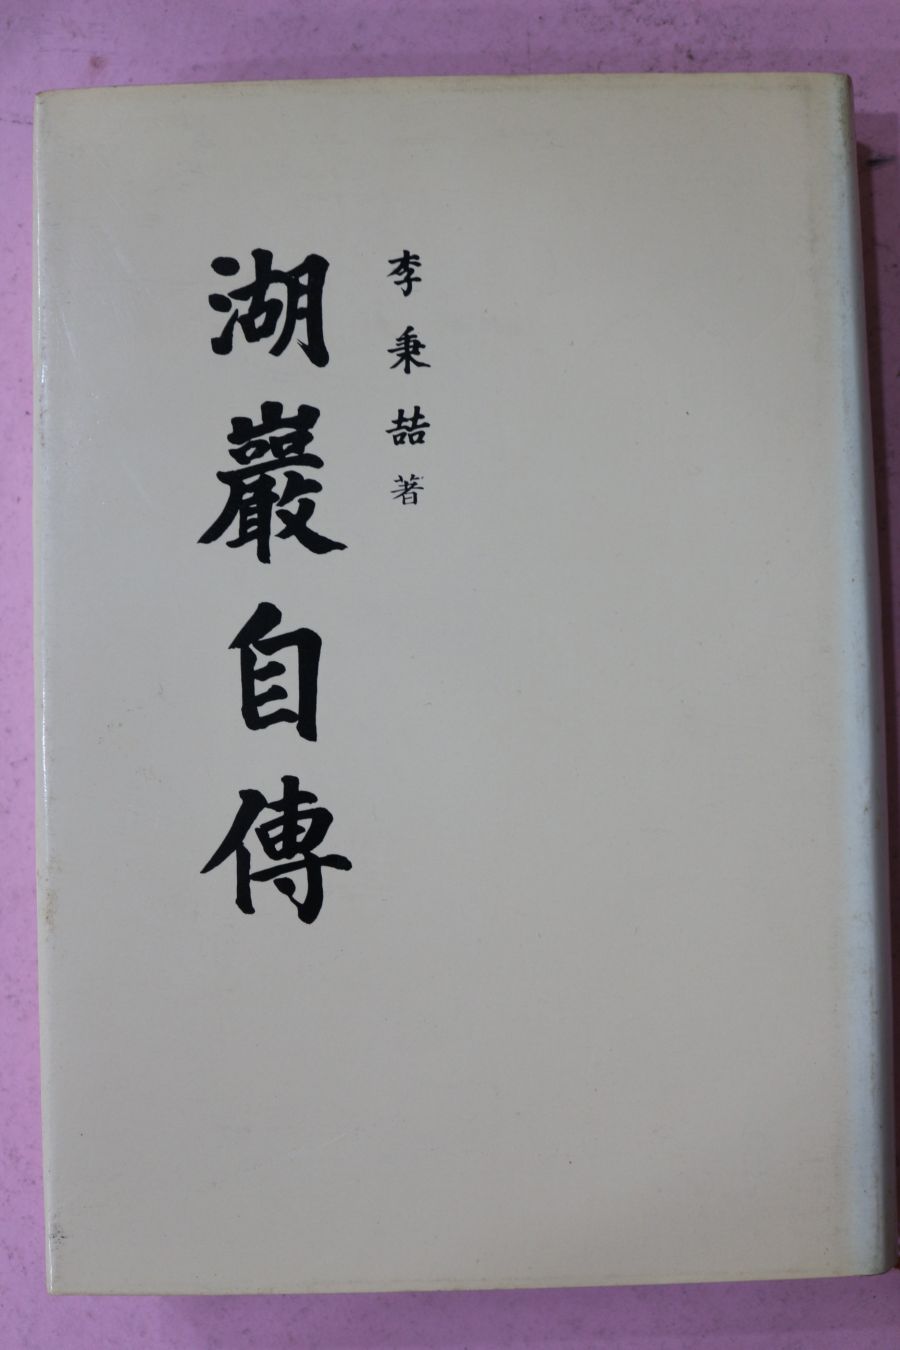 李秉喆著
湖巖自傳